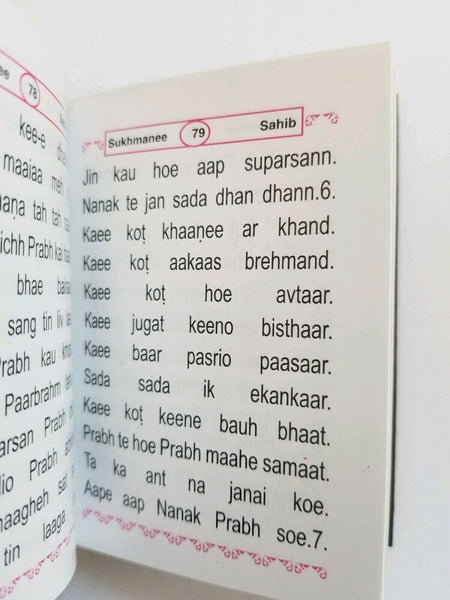 78
kee-e
maaiaa
tah tah
Prabh kai
bhae
sang tin liv
Prabh kau
Paarbrahm
Prabh
Prabh
tin laaga
Sukhmanee 79 Sahib
Jin kau hoe aap suparsann.
Nanak te jan sada dhan dhann.6.
Kaee koṭ khaaṇee ar khand.
Kaee koṭ aakaas brehmand.
Kaee koṭ hoe avtaar.
Kaee jugat keeno bisthaar.
Kaee baar pasrio paasaar.
Sada sada ik ekankaar.
Kaee koṭ keene bauh bhaat.
Prabh te hoe Prabh maahe samaat.
Ta ka ant na janai koe.
Aape aap Nanak Prabh soe.7.